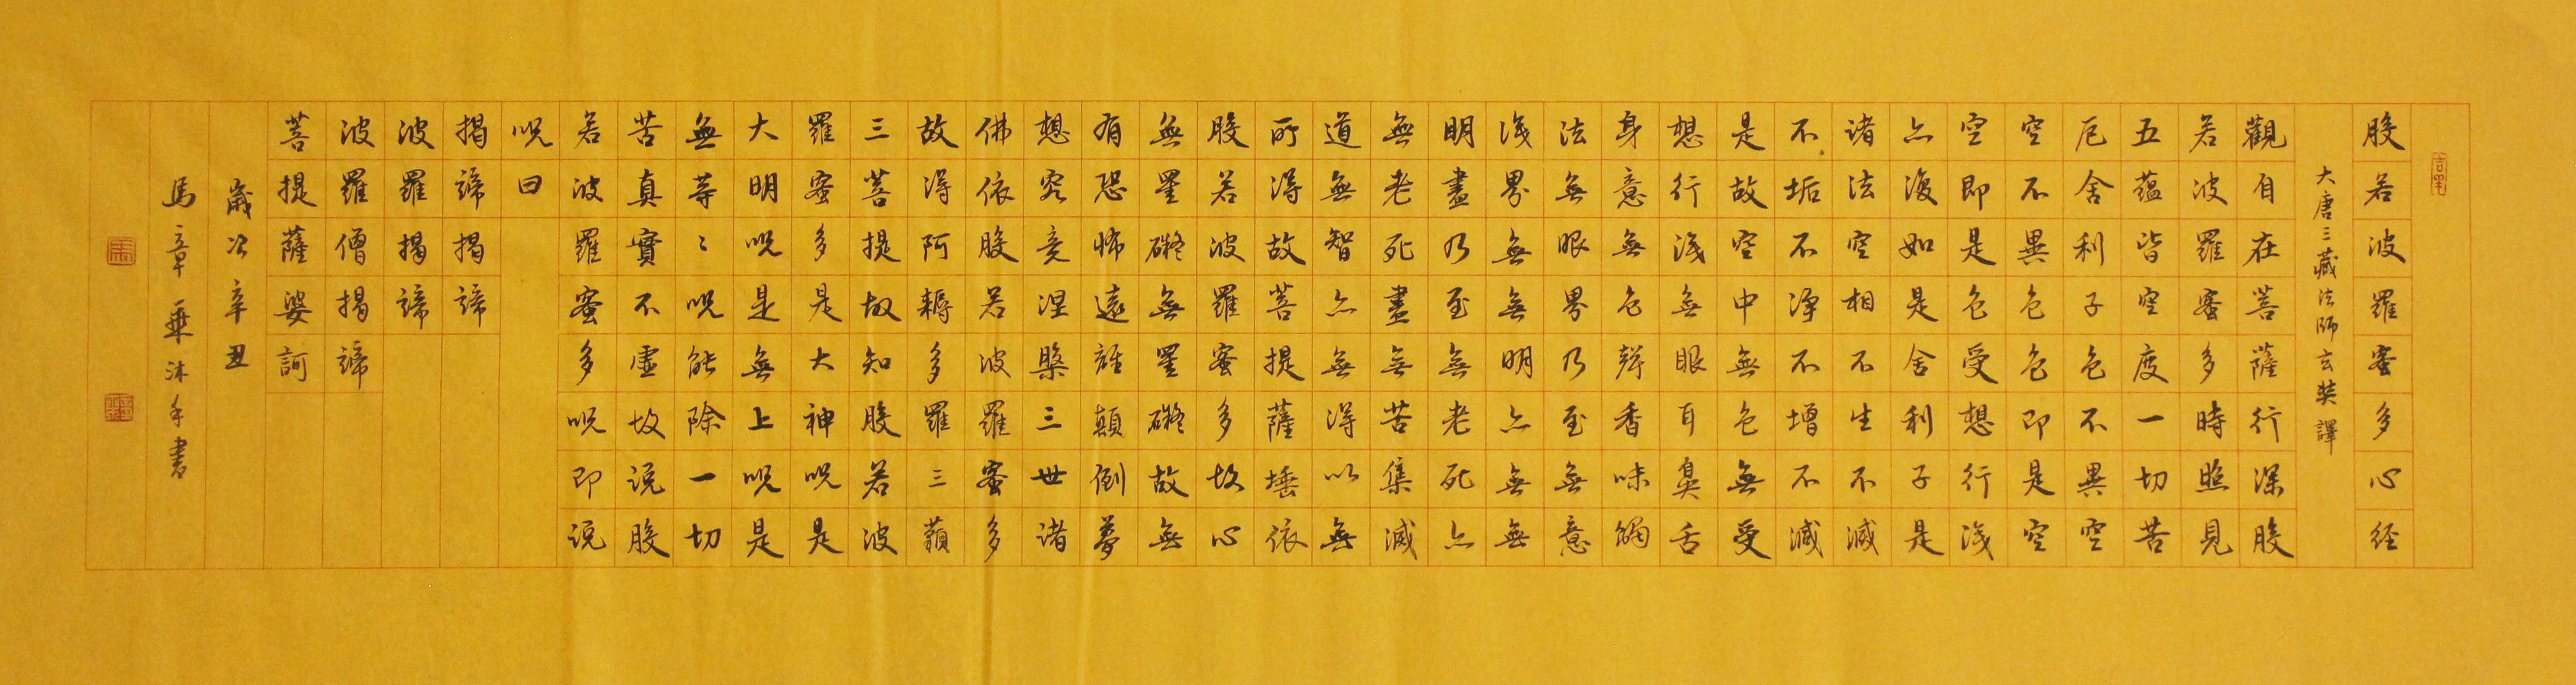 般若波羅蜜多心経
大唐三藏法師玄奘譯
觀自在菩薩行深般
若波羅蜜多時照見
五蘊皆空度一切苦
厄舍利子色不異空
空不異色色即是空
空即是色受想行識
亦復如是舍利子是
諸法空相不生不滅
不垢不淨不增不減
是故空中無色無受
想行識無眼耳鼻舌
身意無色聲香味觸
法無眼界乃至無意
識界無無明亦無無
明盡乃至無老死亦
無老死盡無苦集滅
道無智亦無得以無
所得故菩提薩埵依
般若波羅蜜多故心
無罣礙無罣礙故無
有恐怖遠離顛倒夢
想究竟涅槃三世諸
佛依般若波羅蜜多
故得阿耨多羅三藐
三菩提故知般若波
羅蜜多是大神呪是
大明呪是無上呪是
無等〻呪能除一切
苦真實不虛故說般
若波羅蜜多呪即說
呪曰
揭諦揭諦
波羅揭諦
波羅僧揭諦
菩提薩婆訶
歲次辛丑
馬章乘沐手書